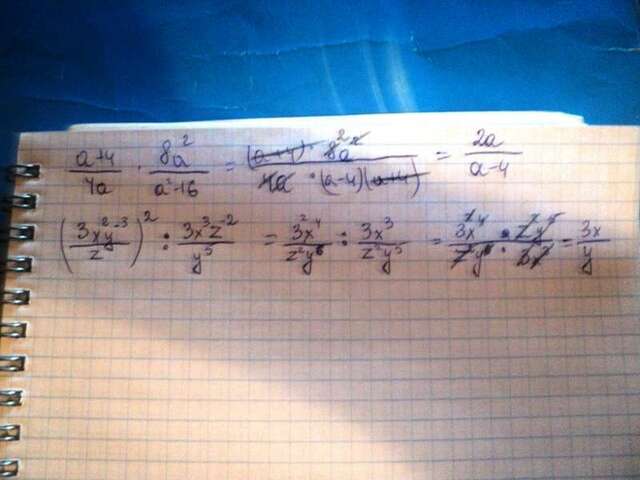 (a+4)/(4a) · (8a²)/(a²-16) = ((a+4) · 8²a²)/(4a · (a-4)(a+4)) = (2a)/(a-4)
((3x²y⁻³)/z)² : (3x³z⁻²)/(y⁵) = (3²x⁴)/(z²y⁶) : (3x³)/(z²y⁵) = (3x⁴)/(z²y⁶) · (z²y⁵)/(3x³) = (3x)/(y)